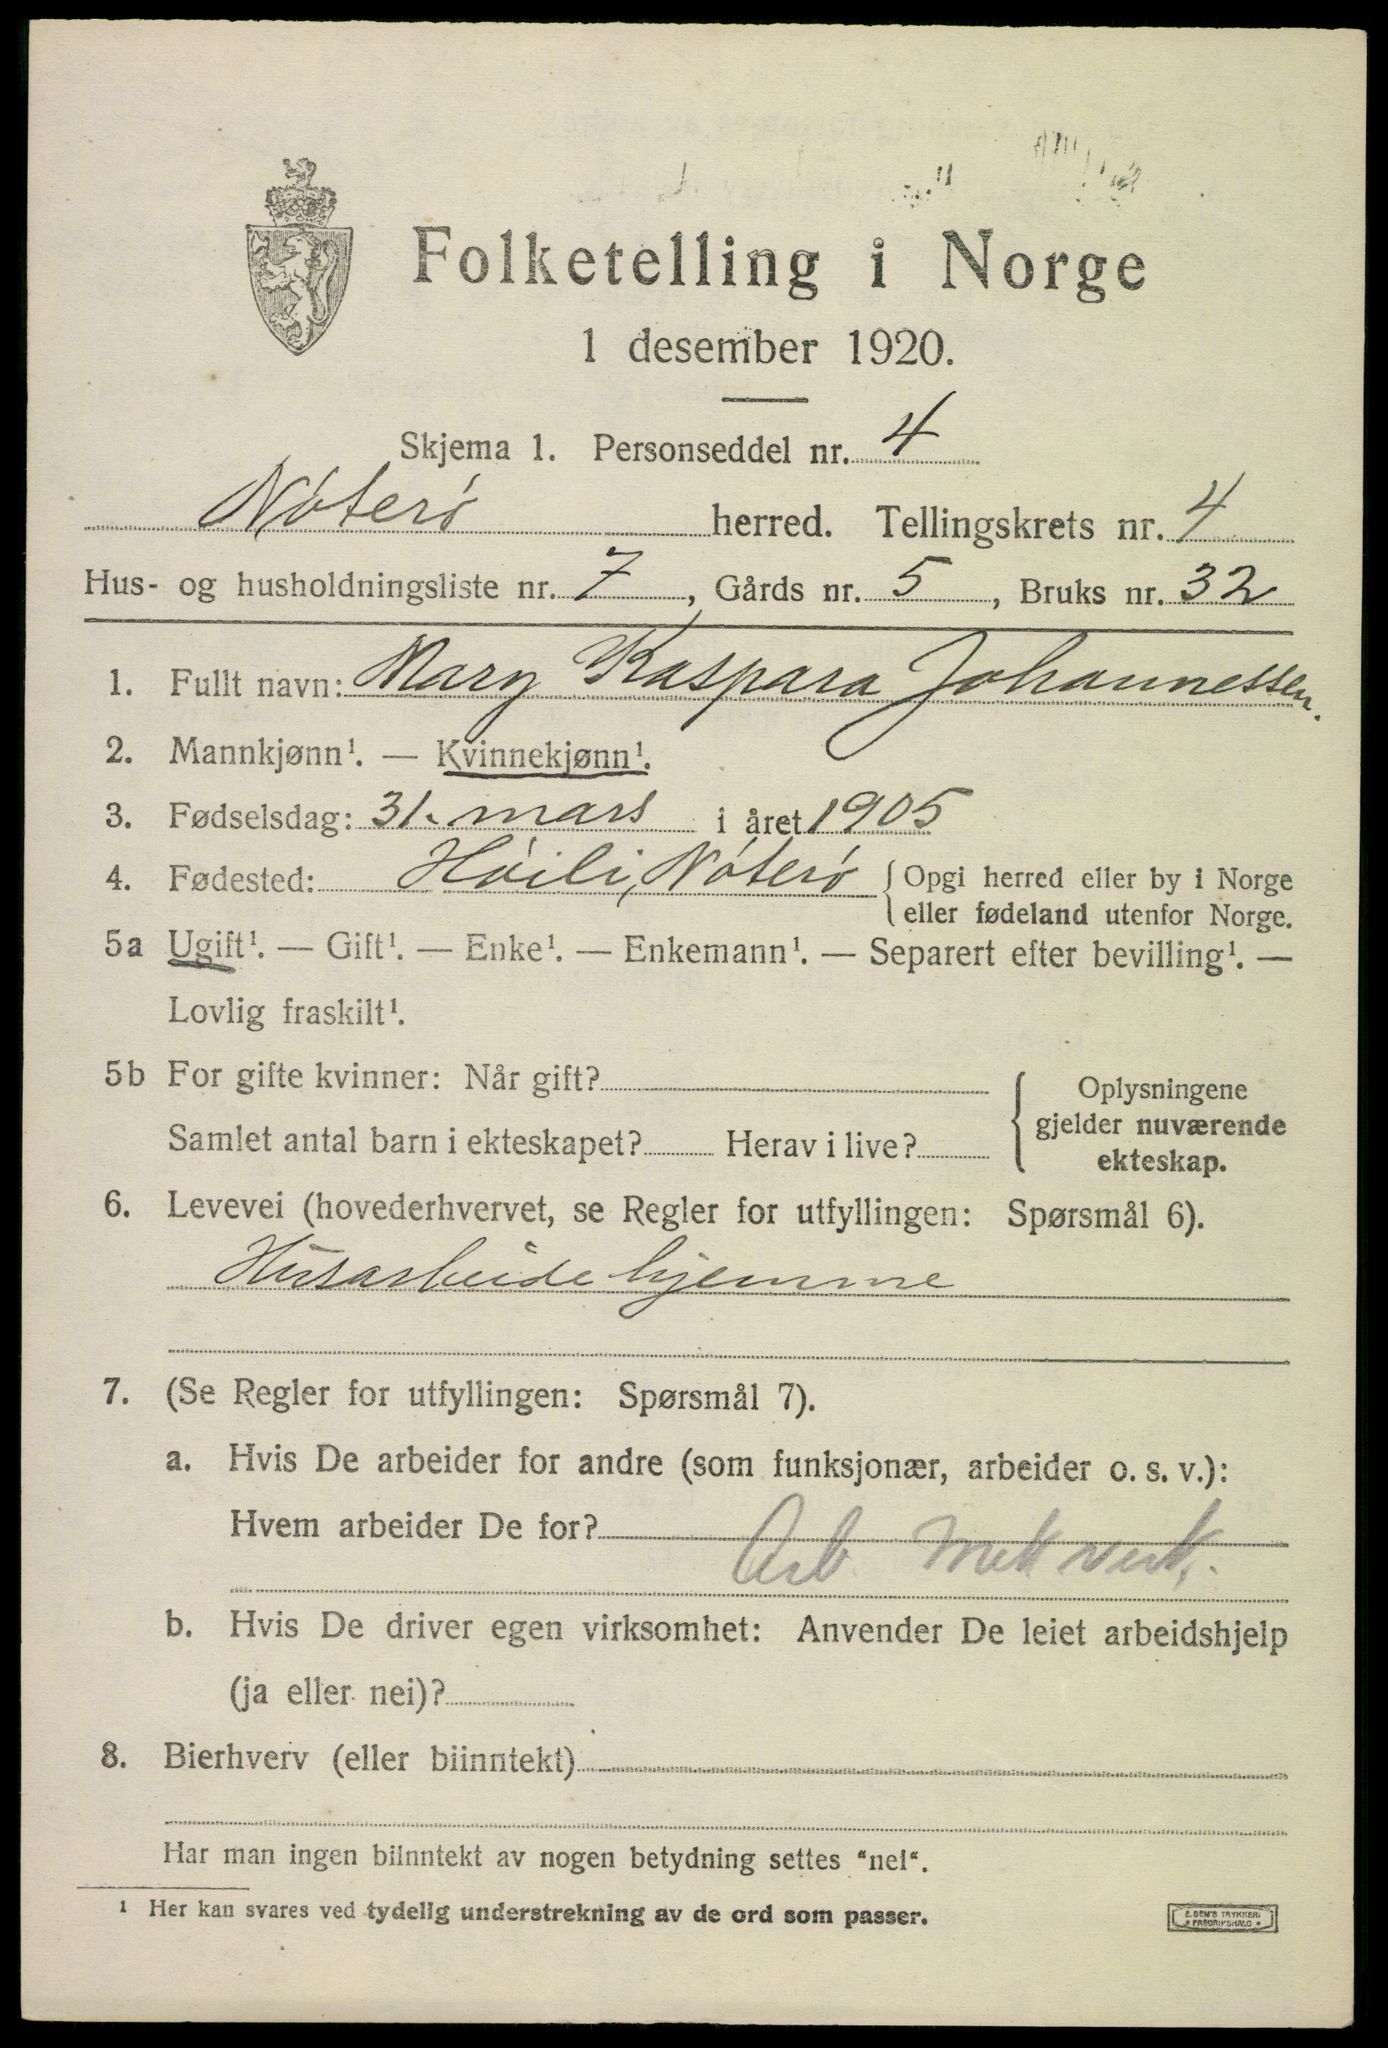 Folketelling i Norge
1 desember 1920.
Skjema 1. Personseddel nr. 4
Nøterø herred. Tellingskrets nr. 4
Hus- og husholdningsliste nr. 7, Gårds nr. 5, Bruks nr. 32
1. Fullt navn: Mary Kaspara Johannessen.
2. Mannkjønn¹. — Kvinnekjønn¹.
3. Fødselsdag: 31. mars i året 1905
4. Fødested: Høili, Nøterø { Opgi herred eller by i Norge
eller fødeland utenfor Norge.
5a Ugift¹. — Gift¹. — Enke¹. — Enkemann¹. — Separert efter bevilling¹. —
Lovlig fraskilt¹.
5b For gifte kvinner: Når gift?
Samlet antal barn i ekteskapet? Herav i live?
{ Oplysningene
gjelder nuværende
ekteskap.
6. Levevei (hovederhvervet, se Regler for utfyllingen: Spørsmål 6).
Husarbeide hjemme
7. (Se Regler for utfyllingen: Spørsmål 7).
a. Hvis De arbeider for andre (som funksjonær, arbeider o. s. v.):
Hvem arbeider De for?
Arb. Mek verk.
b. Hvis De driver egen virksomhet: Anvender De leiet arbeidshjelp
(ja eller nei)?
8. Bierhverv (eller biinntekt)
Har man ingen biinntekt av nogen betydning settes "nei".
¹ Her kan svares ved tydelig understrekning av de ord som passer.
E. SEM'S TRYKKERI
* FREDRIKSHALD *